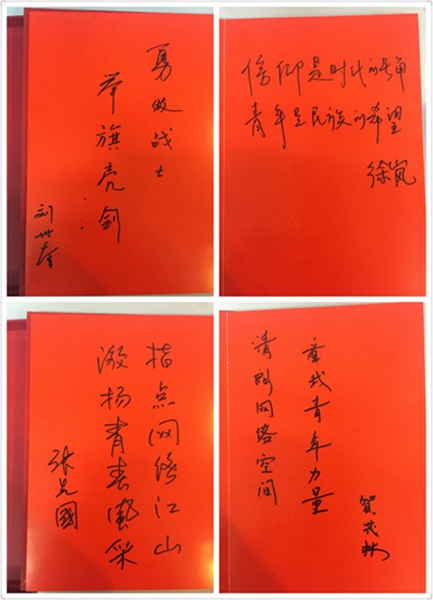 勇做战士
举旗亮剑
刘世奎
信仰是时代的号角
青年是民族的希望
徐岚
指点网络江山
激扬青春風采
张國
我青年力量
清朗网络空间
贺茂林